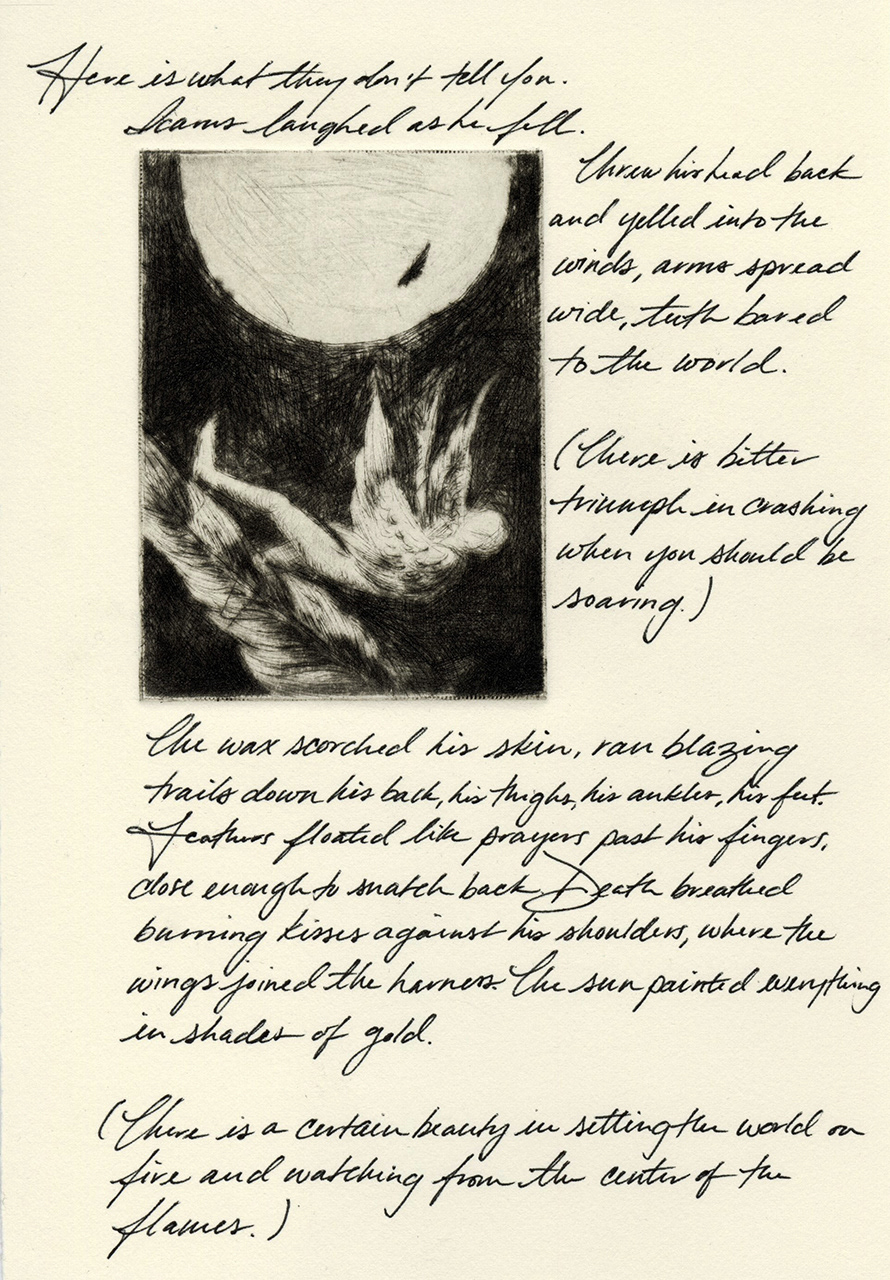 Here is what they don't tell you.
Icarus laughed as he fell.
Threw his head back
and yelled into the
winds, arms spread
wide, teeth bared
to the world.
(There is bitter
triumph in crashing
when you should be
soaring.)
The wax scorched his skin, ran blazing
trails down his back, his thighs, his ankles, his feet.
Feathers floated like prayers past his fingers,
close enough to snatch back. Death breathed
burning kisses against his shoulders, where the
wings joined the harness. The sun painted everything
in shades of gold.
(There is a certain beauty in setting the world on
fire and watching from the center of the
flames.)